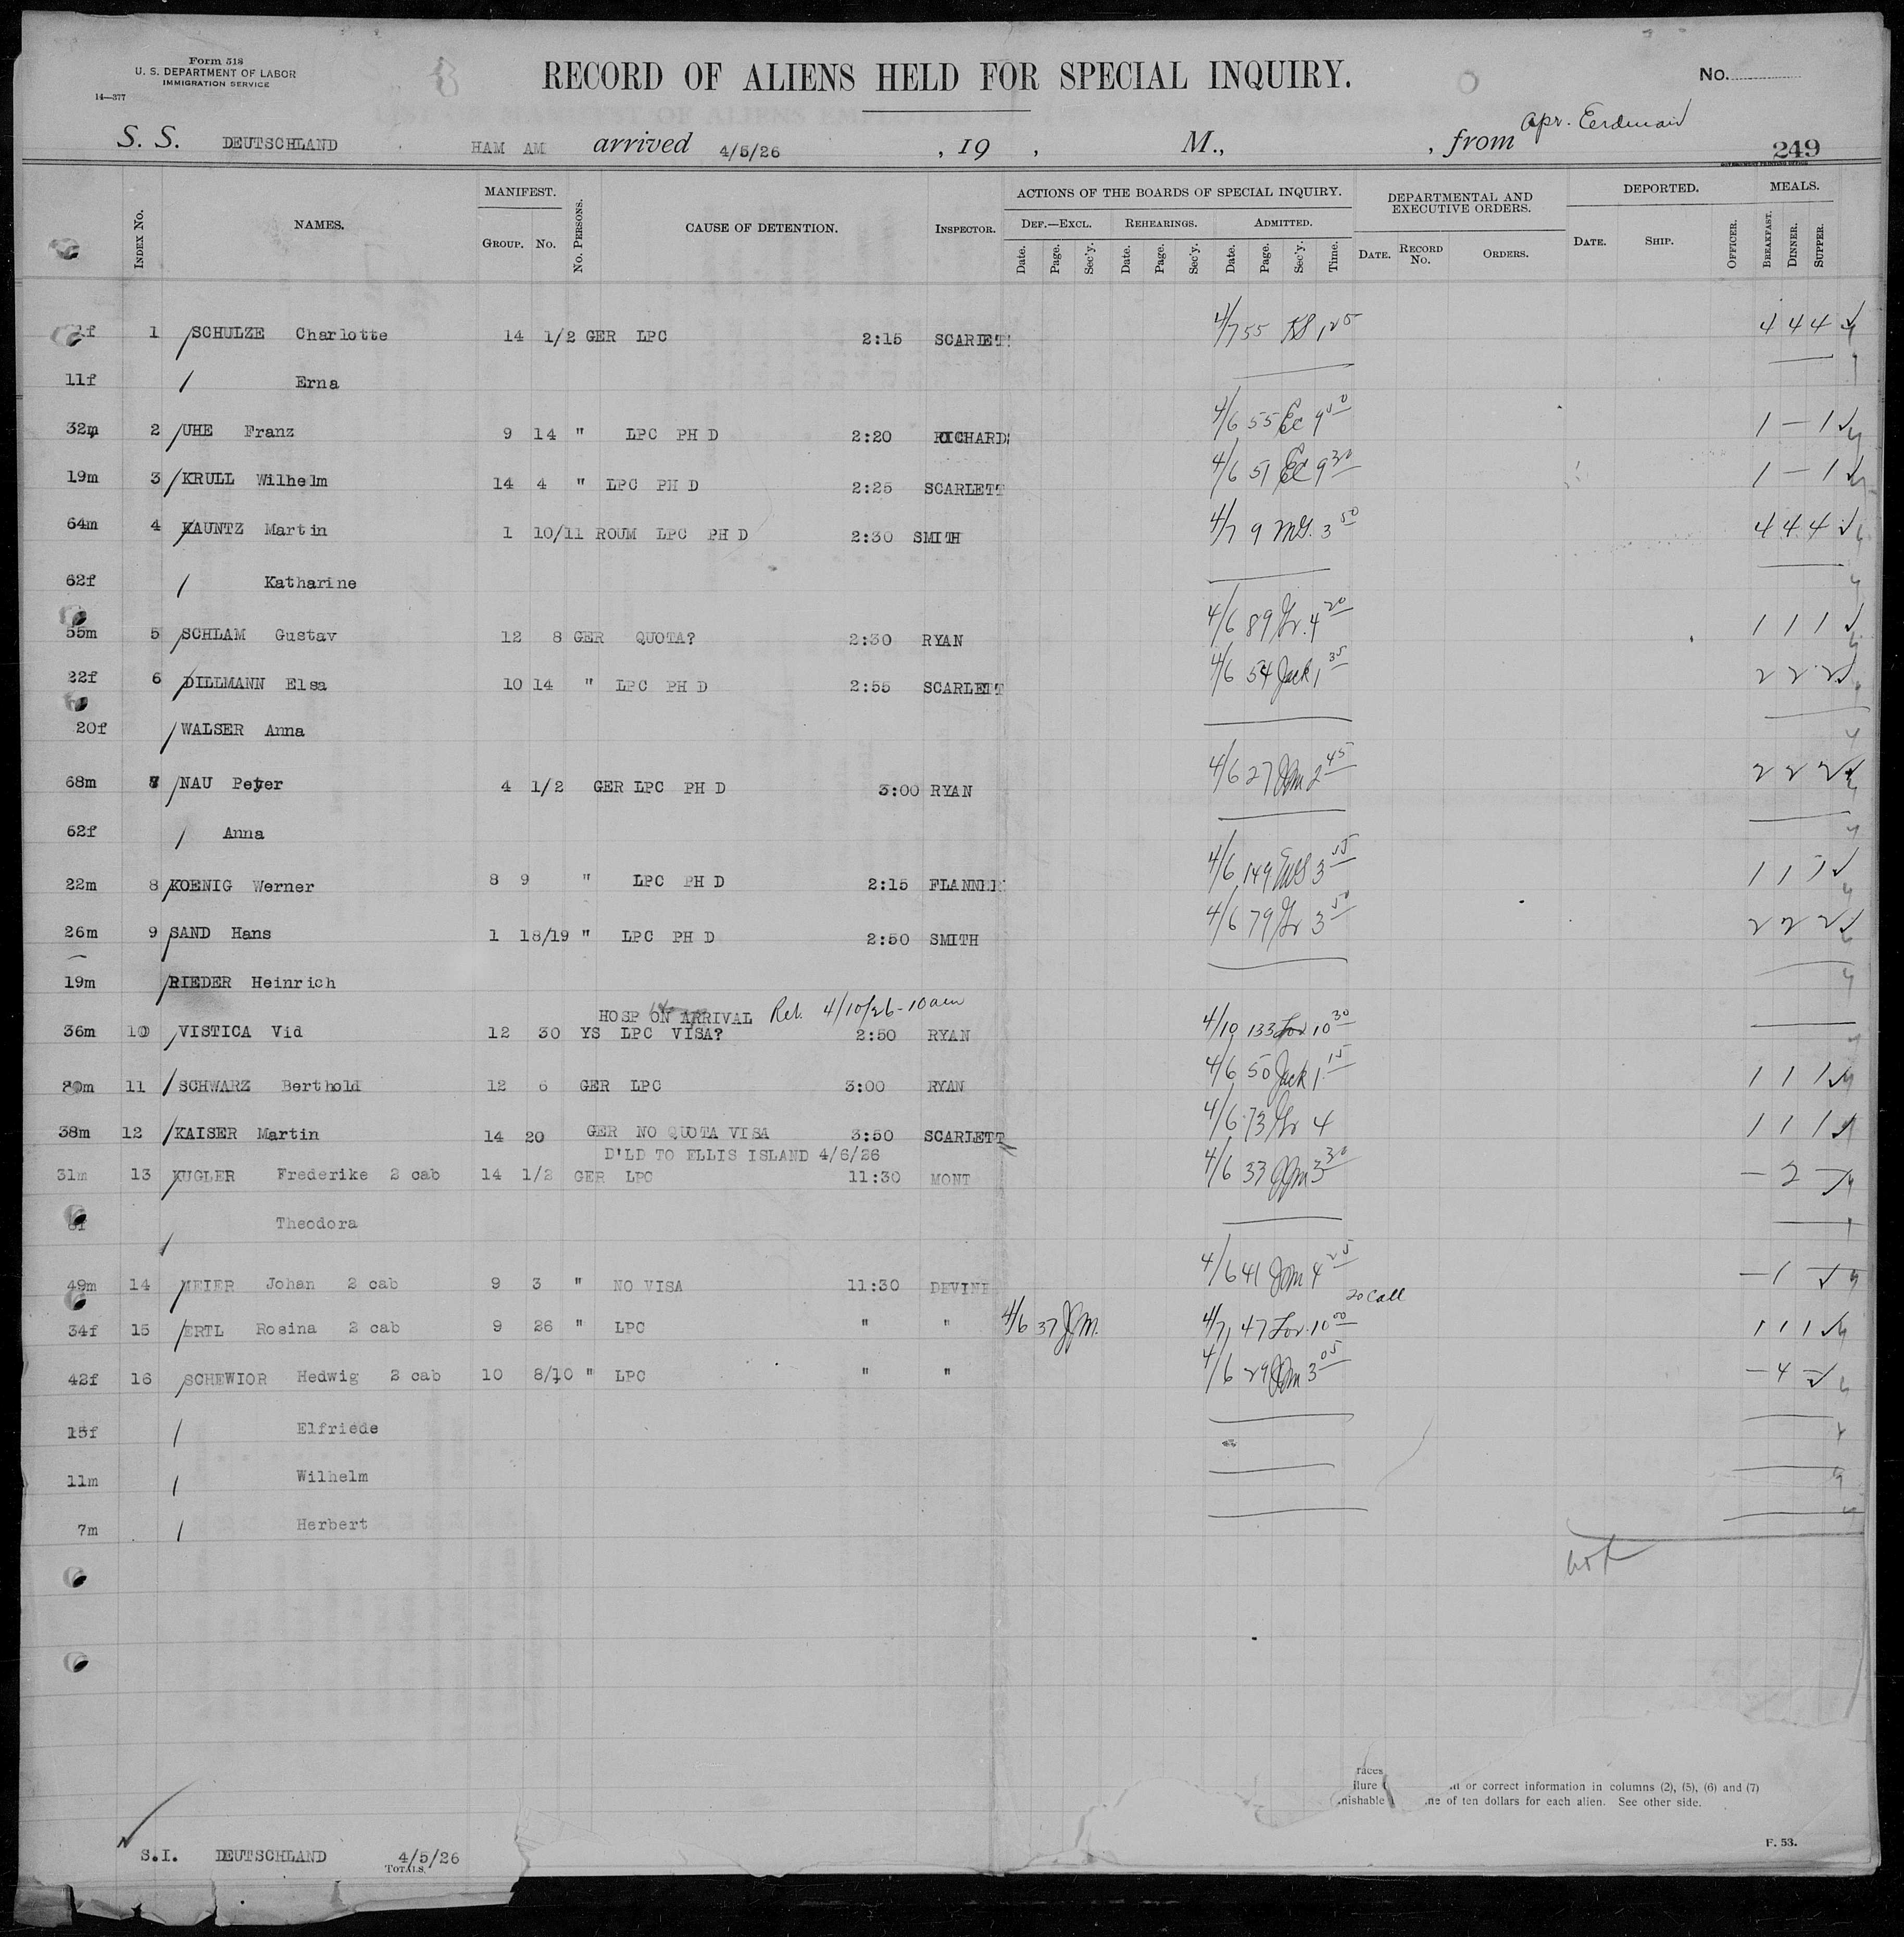 Form 518
U. S. DEPARTMENT OF LABOR
IMMIGRATION SERVICE
14—377
RECORD OF ALIENS HELD FOR SPECIAL INQUIRY.
No.
S. S. DEUTSCHLAND HAM AM arrived 4/5/26 , 19 , M., , from Apr. Eerdman
249
Index No. NAMES. MANIFEST. Group. No. No. Persons. CAUSE OF DETENTION. Inspector. ACTIONS OF THE BOARDS OF SPECIAL INQUIRY. DEPARTMENTAL AND EXECUTIVE ORDERS. DEPORTED. MEALS.
Def.—Excl. Rehearings. Admitted.
Date. Page. Sec'y. Date. Page. Sec'y. Date. Page. Sec'y. Time. Date. Record No. Orders. Date. Ship. Officer. Breakfast. Dinner. Supper.
1 SCHULZE Charlotte 14 1/2 GER LPC 2:15 SCARLETT 4/7 55 1 25 4 4 4
11f Erna
32m 2 UHE Franz 9 14 " LPC PH D 2:20 RICHARDS 4/6 55 Ec 9 1 — 1
19m 3 KRULL Wilhelm 14 4 " LPC PH D 2:25 SCARLETT 4/6 51 Ec 9 30 1 — 1
64m 4 KAUNTZ Martin 1 10/11 ROUM LPC PH D 2:30 SMITH 4/7 9 MS. 3 50 4 4 4
62f Katharine
55m 5 SCHLAM Gustav 12 8 GER QUOTA? 2:30 RYAN 4/6 89 Gr. 4 20 1 1 1
22f 6 DILLMANN Elsa 10 14 " LPC PH D 2:55 SCARLETT 4/6 54 Jack 1 35 2 2 2
20f WALSER Anna
68m 7 NAU Peter 4 1/2 GER LPC PH D 3:00 RYAN 4/6 27 JJM 2 45 2 2 2
62f Anna
22m 8 KOENIG Werner 8 9 " LPC PH D 2:15 FLANNER 4/6 149 MS 3 55 1 1 1
26m 9 SAND Hans 1 18/19 " LPC PH D 2:50 SMITH 4/6 79 Gr 3 50 2 2 2
19m RIEDER Heinrich
HOSP ON ARRIVAL Rel. 4/10/26 - 10 am
36m 10 VISTICA Vid 12 30 YS LPC VISA? 2:50 RYAN 4/10 133 Lov. 10 30
11 SCHWARZ Berthold 12 6 GER LPC 3:00 RYAN 4/6 50 Jack 1 15 1 1 1
38m 12 KAISER Martin 14 20 GER NO QUOTA VISA 3:50 SCARLETT 4/6 73 Gr 4 1 1 1
D'LD TO ELLIS ISLAND 4/6/26
31m 13 KUGLER Frederike 2 cab 14 1/2 GER LPC 11:30 MONT 4/6 33 JJM 3 30 — 2 —
Theodora
49m 14 MEIER Johan 2 cab 9 3 " NO VISA 11:30 DEVINE 4/6 41 JJM 4 25 — 1 —
20 call
34f 15 ERTL Rosina 2 cab 9 26 " LPC " " 4/6 37 JJM. 4/7 47 Lov. 10 00 1 1 1
42f 16 SCHEWIOR Hedwig 2 cab 10 8/10 " LPC " " 4/6 29 JJM 3 05 — 4 —
15f Elfriede
11m Wilhelm
7m Herbert
races
ilure or correct information in columns (2), (5), (6) and (7)
nishable ne of ten dollars for each alien. See other side.
F. 53.
S.I. DEUTSCHLAND 4/5/26
Totals.